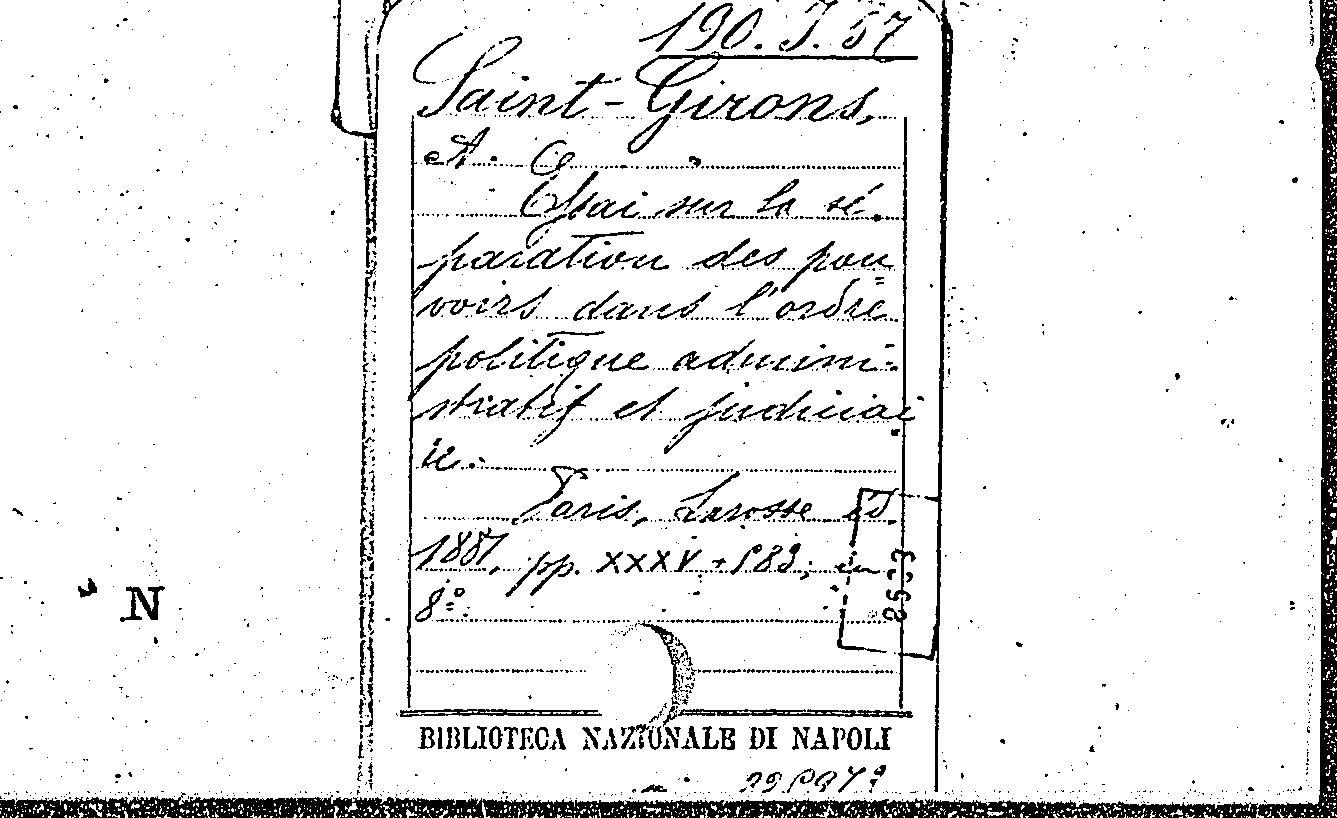 190. J. 57
Saint-Girons,
A.
Essai sur la sé-
paration des pou
voirs dans l'ordre
politique admini-
stratif et judiciai
re.
Paris, Larosse éd.
1881, pp. XXXV - 583; in
8º.
8533
N
BIBLIOTECA NAZIONALE DI NAPOLI